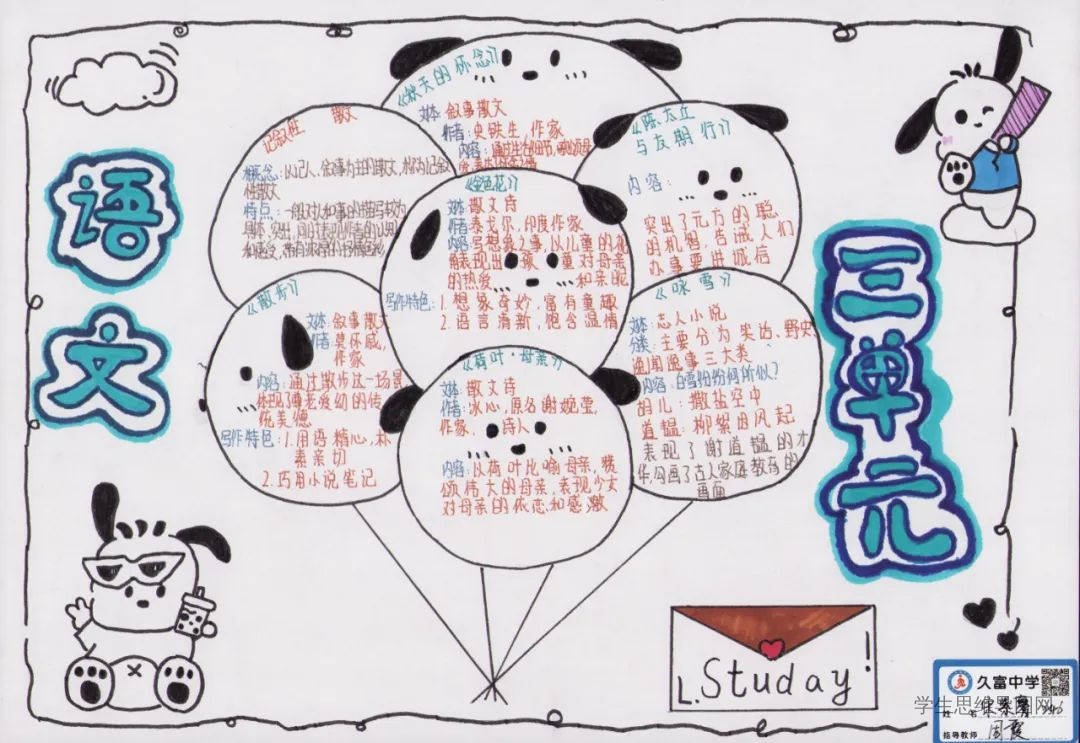 语文
三单元
《秋天的怀念》
文体:叙事散文
作者:史铁生,作家
内容:通过生活的细节,
记叙性 散文
概念:以记人、叙事为主的散文,称为记叙
性散文
特点:一般对人和事的描写较为
具体、突出,同时表现作者的认知
和感受,带有浓厚的抒情色彩
《陈太丘
与友期行》
内容:
突出了元方的聪
的机智,告诫人们
办事要讲诚信
《金色花》
文体:散文诗
作者:泰戈尔,印度作家
内容:写想象之事,以儿童的视
角表现出 孩 童对母亲
的热爱 和亲昵
写作特色:1.想象奇妙,富有童趣
2.语言清新,饱含温情
《散步》
文体:叙事散文
作者:莫怀戚,
作家
内容:通过散步这一场景
体现了尊老爱幼的传
统美德
写作特色:1.用语精心,朴
素亲切
2.巧用小说笔记
《咏雪》
文体:志人小说
分类:主要分为笑话、野史
逸闻逸事三大类
内容:白雪纷纷何所似?
的儿:撒盐空中
道韫:柳絮因风起
表现了谢道韫的才
华,勾画了古人家庭教育的
画面
《荷叶·母亲》
文体:散文诗
作者:冰心,原名谢婉莹,
作家、诗人
内容:以荷叶比喻母亲,赞
颂伟大的母亲,表现少女
对母亲的依恋和感激
L.Studay!
久富中学
学生思维导图网
姓名
指导教师 周霞